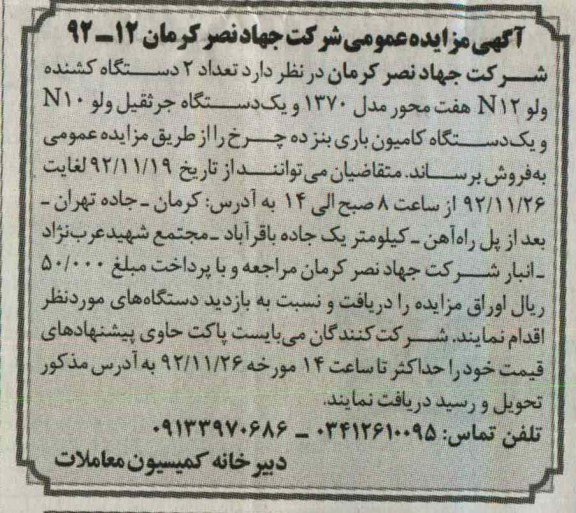 آگهی مزایده عمومی شرکت جهاد نصر کرمان ۱۲ــ۹۲
شــرکت جهاد نصر کرمان در نظر دارد تعداد ۲ دســتگاه کشنده
ولو N۱۲ هفت محور مدل ۱۳۷۰ و یک دســـتگاه جرثقیل ولو N۱۰
و یک دســـتگاه کامیون باری بنز ده چـــرخ را از طریق مزایده عمومی
به‌فروش برســـاند. متقاضیان می‌تواننـــد از تاریخ ۹۲/۱۱/۱۹ لغایت
۹۲/۱۱/۲۶ از ساعت ۸ صبح الی ۱۴ به آدرس: کرمان ـ جاده تهران ـ
بعد از پل راه‌آهن ـ کیلومتر یک جاده باقرآباد ـ مجتمع شهید عرب‌نژاد
ـ انبار شــرکت جهاد نصر کرمان مراجعه و با پرداخت مبلغ ۵۰/۰۰۰
ریال اوراق مزایده را دریافت و نسبت به بازدید دستگاه‌های موردنظر
اقدام نمایند. شــرکت‌کنندگان می‌بایست پاکت حاوی پیشنهادهای
قیمت خود را حداکثر تا ساعت ۱۴ مورخه ۹۲/۱۱/۲۶ به آدرس مذکور
تحویل و رسید دریافت نمایند.
تلفن تماس: ۰۳۴۱۲۶۱۰۰۹۵ ــ ۰۹۱۳۳۹۷۰۶۸۶
دبیرخانه کمیسیون معاملات